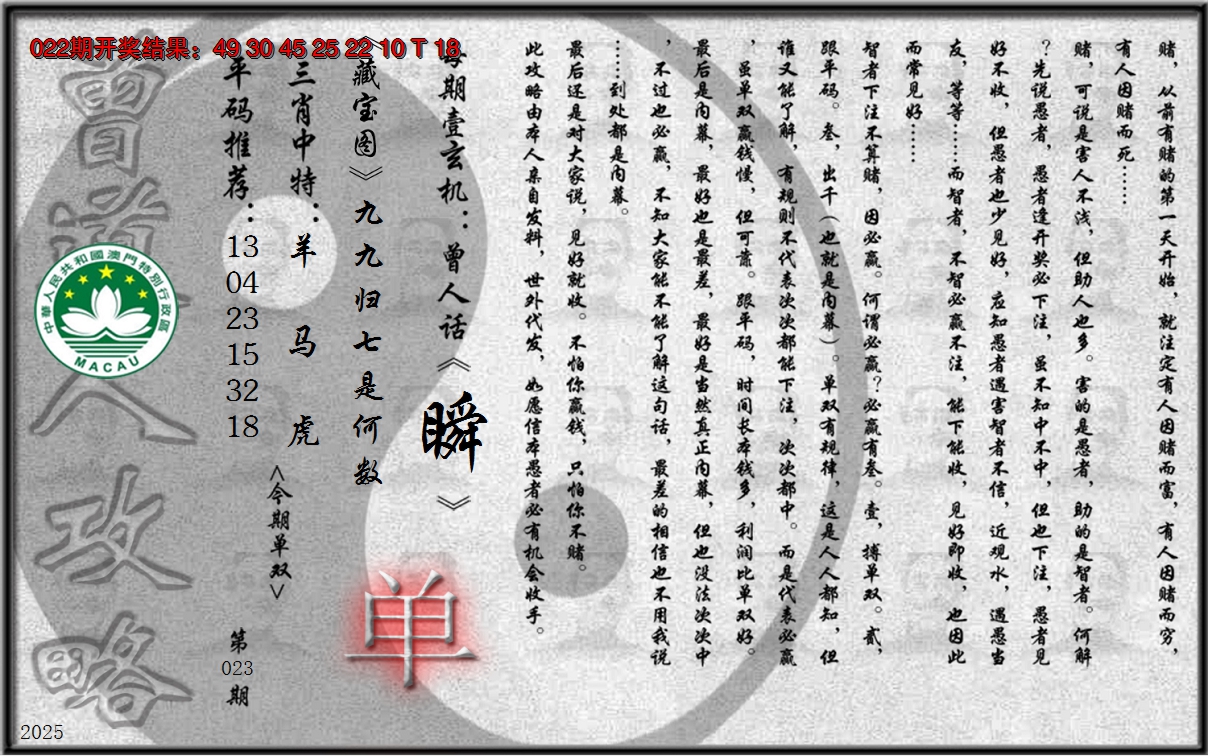 022期开奖结果：49 30 45 25 22 10 T 18
赌，从前有赌的第一天开始，就注定有人因赌而富，有人因赌而穷，
有人因赌而死……
赌，可说是害人不浅，但助人也多。害的是愚者，助的是智者。何解
？先说愚者，愚者逢开奖必下注，虽不知中不中，但也下注，愚者见
好不收，但愚者也少见好，应知愚者遇害智者不信，近观水，遇愚当
友，等等……而智者，不智必赢不注，能下能收，见好即收，也因此
而常见好……
智者下注不算赌，因必赢。何谓必赢？必赢有叁。壹，搏单双。贰，
跟平码。叁，出千（也就是内幕）。单双有规律，这是人人都知，但
谁又能了解，有规则不代表次次都能下注，次次都中。而是代表必赢
，虽单双赢钱慢，但可靠。跟平码，时间长本钱多，利润比单双好。
最后是内幕，最好也是最差，最好是当然真正内幕，但也没法次次中
，不过也必赢，不知大家能不能了解这句话，最差的相信也不用我说
……到处都是内幕。
最后还是对大家说，见好就收。不怕你赢钱，只怕你不赌。
此攻略由本人亲自发料，世外代发，如愿信本愚者必有机会收手。
每期壹玄机：曾人话《瞬》
《藏宝图》九九归七是何数
单
三肖中特：羊 马 虎
<今期单双>
平码推荐：
13
04
23
15
32
18
第
023
期
曾道人攻略
中華人民共和國澳門特別行政區
MACAU
2025